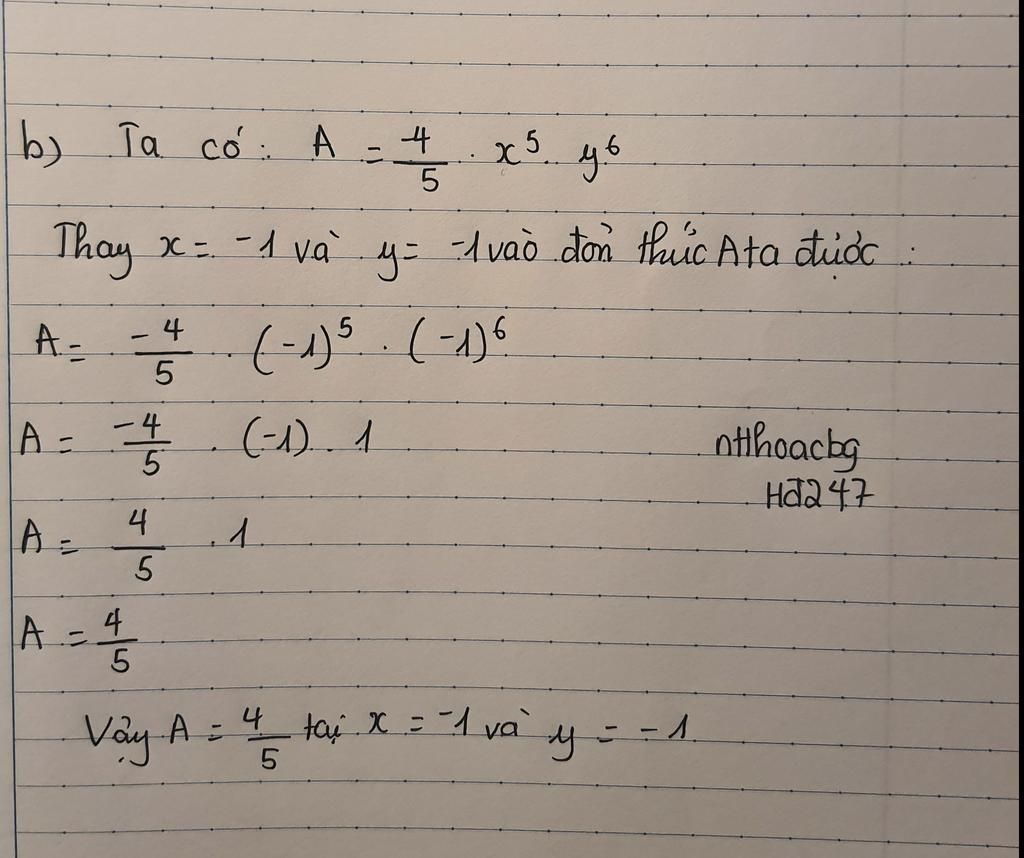 b) Ta có: A = -4/5 . x⁵ . y⁶
Thay x = -1 và y = -1 vào đơn thức A ta được :
A = -4/5 . (-1)⁵ . (-1)⁶
A = -4/5 . (-1) . 1
nHhoacbg
A = 4/5 . 1
Hđ247
A = 4/5
Vậy A = 4/5 tại x = -1 và y = -1